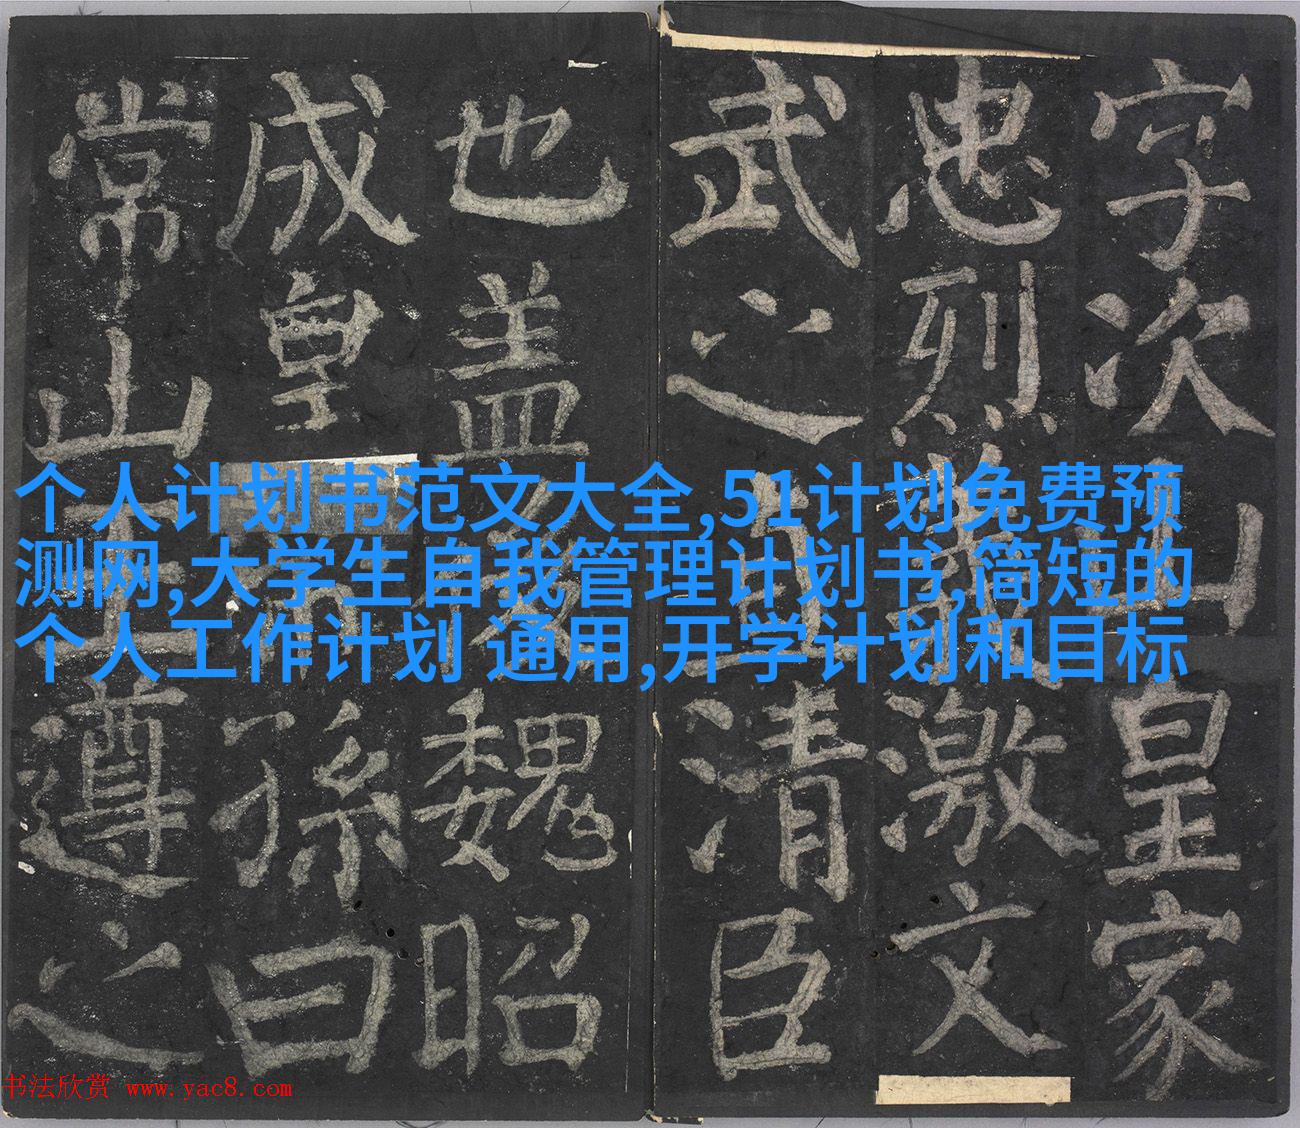 字次山皇家
忠烈義激文
武之直清臣
也盖後魏昭
成皇帝孫曰
常山王遵之
个人计划书范文大全,51计划免费预
测网,大学生自我管理计划书,简短的
个人工作计划 通用,开学计划和目标
书法欣赏 www.yac8.com